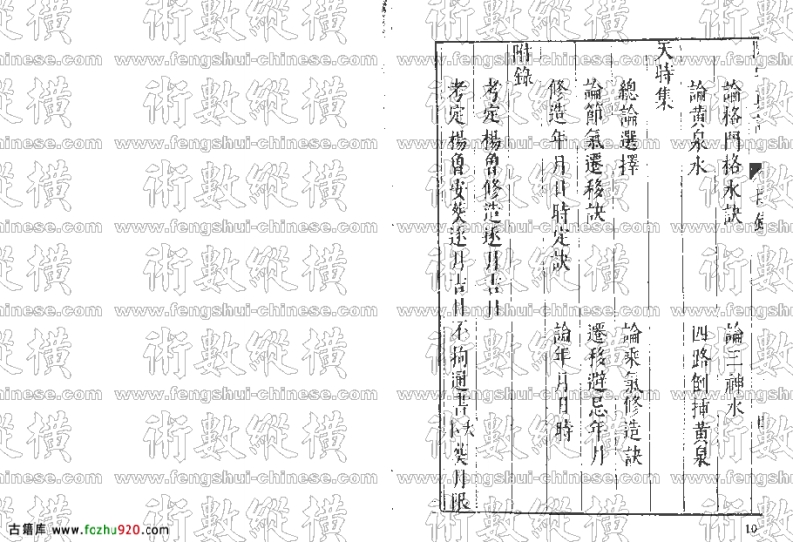 論格門格水訣 論三神水
論黃泉水 四路倒排黃泉
天時集
總論選擇 論乘氣修造訣
論節氣遷移訣 遷移避忌年月
修造年月日時定訣 論年月日時
附錄
考定楊曾修造逐月吉日
考定楊曾安葬逐月吉日不拘通書大葬月限
10
術數縱橫
www.fengshui-chinese.com
古籍库 www.fozhu920.com